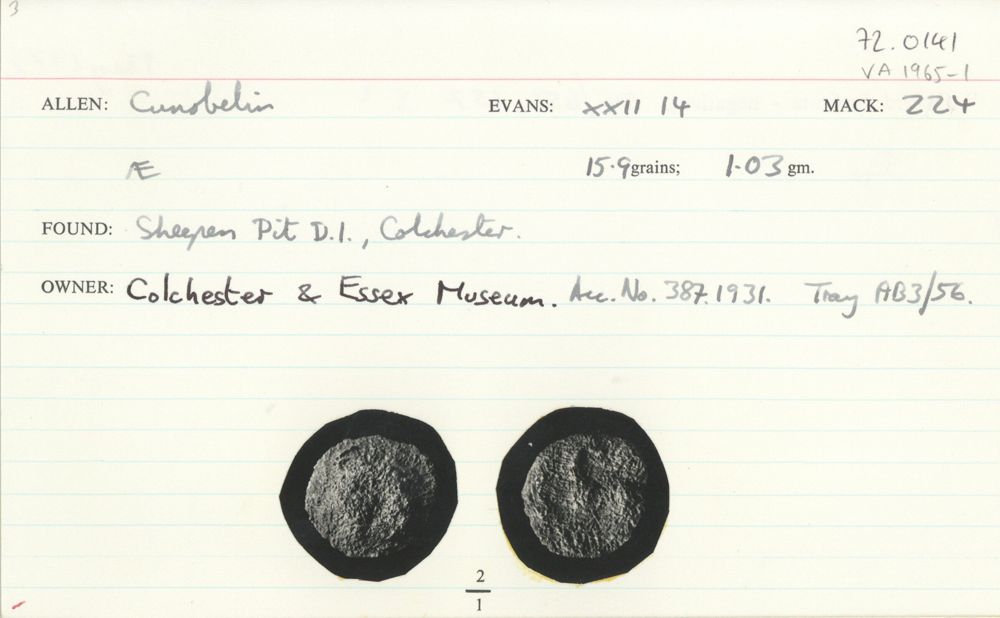 3
72.0141
VA 1965-1
ALLEN: Cunobelin EVANS: XXII 14 MACK: 224
Æ 15.9 grains; 1.03 gm.
FOUND: Sheepen Pit D.1., Colchester.
OWNER: Colchester & Essex Museum. Acc. No. 387.1931. Tray AB3/56.
2
1